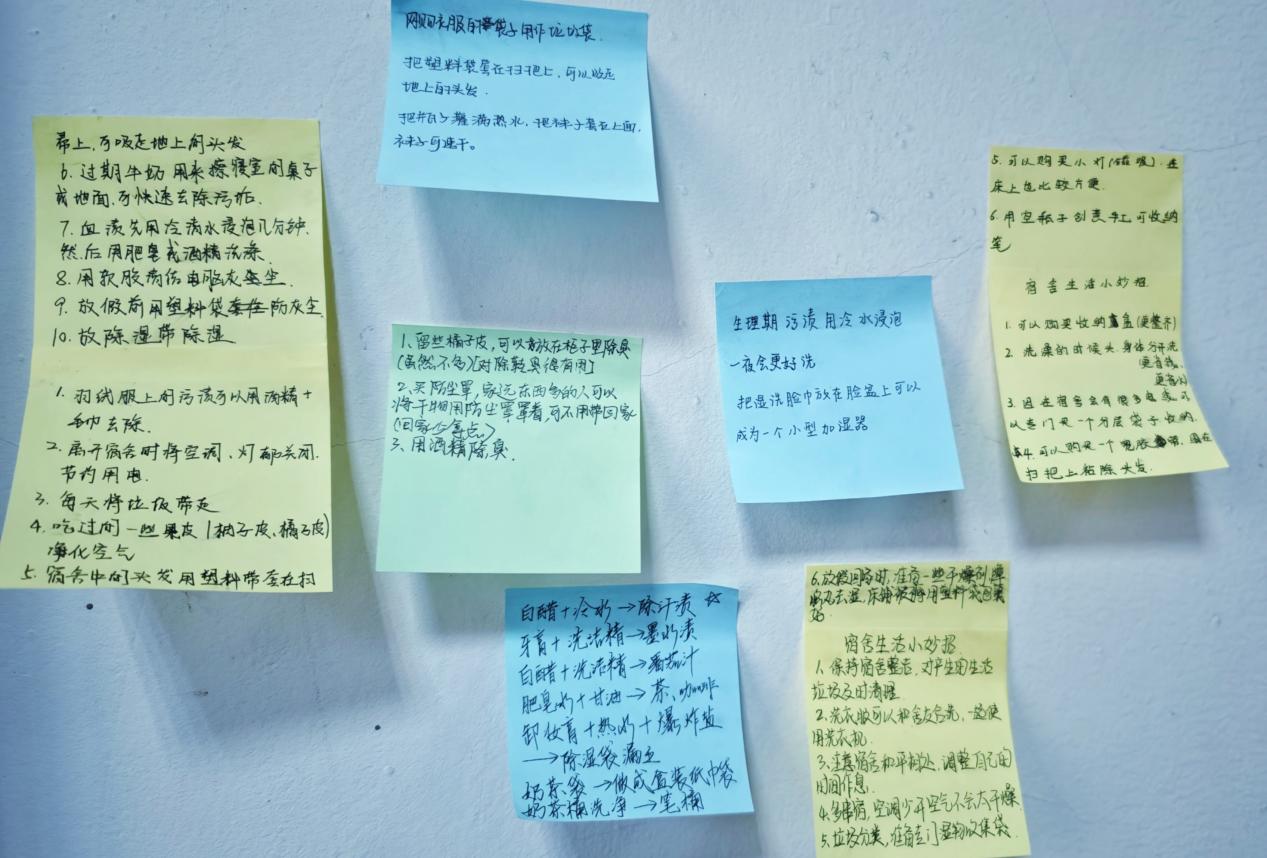 网购衣服的袋子用作垃圾袋.
把塑料袋套在扫把上,可以吸走
地上的头发.
把瓶子灌满热水,把袜子套在上面,
袜子可速干。
帚上,可吸走地上的头发
6. 过期牛奶用来擦寝室的桌子
或地面,可快速去除污垢.
7. 血渍先用冷清水浸泡几分钟.
然后用肥皂或酒精洗涤.
8. 用软胶清洁电脑灰尘.
9. 放假前用塑料袋套住防灰尘
10. 放除湿带除湿
1. 羽绒服上的污渍可以用酒精+
毛巾去除.
2. 离开宿舍时将空调、灯都关闭.
节约用电.
3. 每天将垃圾带走
4. 吃过的一些果皮(柚子皮、橘子皮)
净化空气
5. 宿舍中的头发用塑料带套在扫
1. 留些橘子皮,可以放在柜子里除臭
(虽然不多)(对除鞋臭很有用)
2. 买防尘罩,家远东西多的人可以
将干物用防尘罩罩着,可不用带回家
(回家少拿点)
3. 用酒精除臭.
生理期污渍用冷水浸泡
一夜会更好洗
把湿洗脸巾放在脸盆上可以
成为一个小型加湿器
5. 可以购买小灯 在
床上也比较方便.
6. 用空瓶子创意手工可收纳
笔
宿舍生活小妙招.
1. 可以购买收纳盒(更整齐)
2. 洗澡的时候头.身体分开洗
更省钱.
更省
3. 因在宿舍会有很多
以专门买一个分层袋子收纳.
4. 可以购买一个 在
扫把上粘除头发.
白醋+冷水→除汗渍 ☆
牙膏+洗洁精→墨水渍
白醋+洗洁精→番茄汁
肥皂水+甘油→茶、咖啡
卸妆膏+热水+爆炸盐
→除湿袋漏液
奶茶袋→做成盒装纸巾袋
奶茶桶洗净→笔桶
6. 放假回家时,在宿一些干燥剂
去湿,床铺被褥用塑料袋包裹
宿舍生活小妙招.
1. 保持宿舍整洁,对产生的生活
垃圾及时清理
2. 洗衣服可以和舍友合洗,一起使
用洗衣机.
3. 注意宿舍和平相处,调整自己的
时间作息.
4. 多 ,空调少开空气不会太干燥
5. 垃圾分类,在宿专门 收集袋